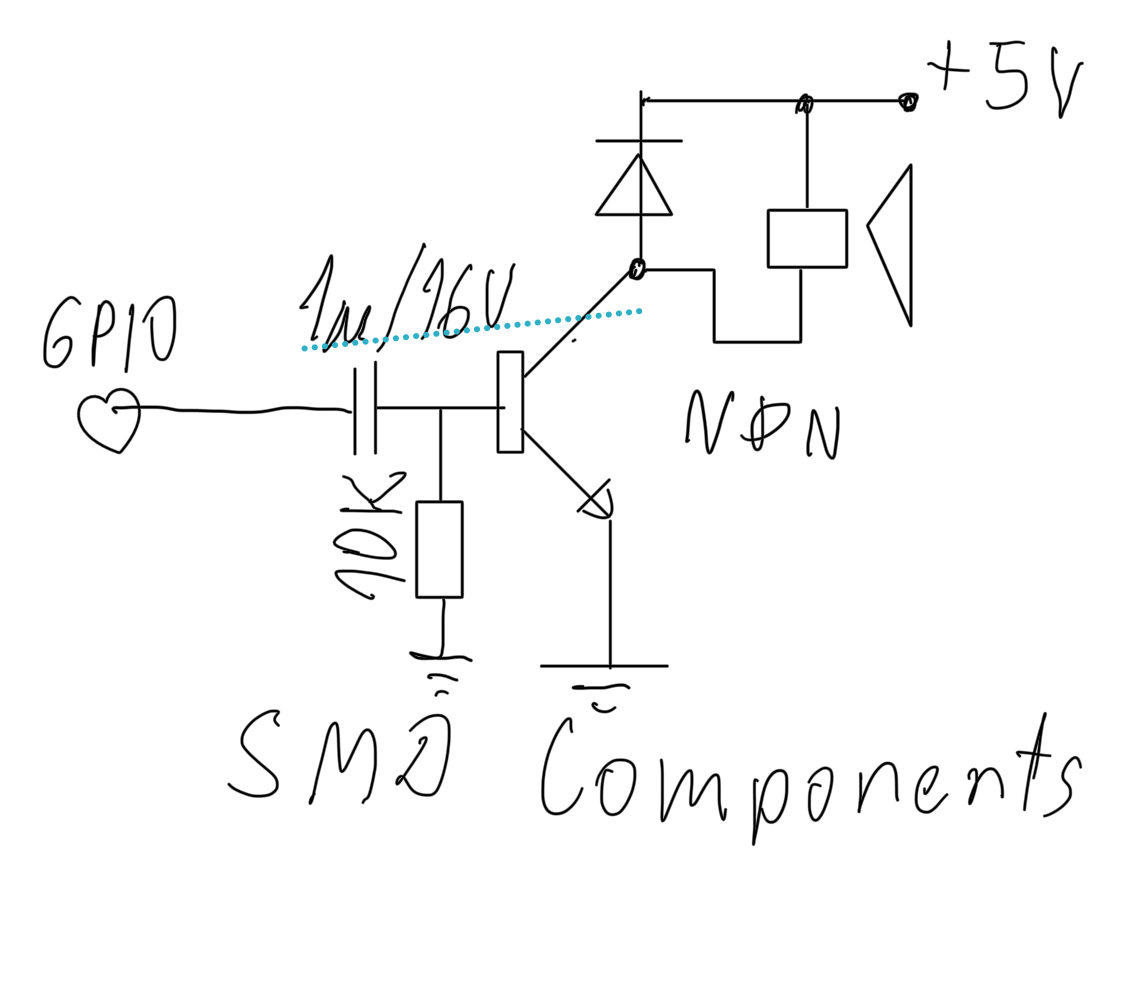 +5V
1µ/16V
GPIO
NPN
10K
SMD Components